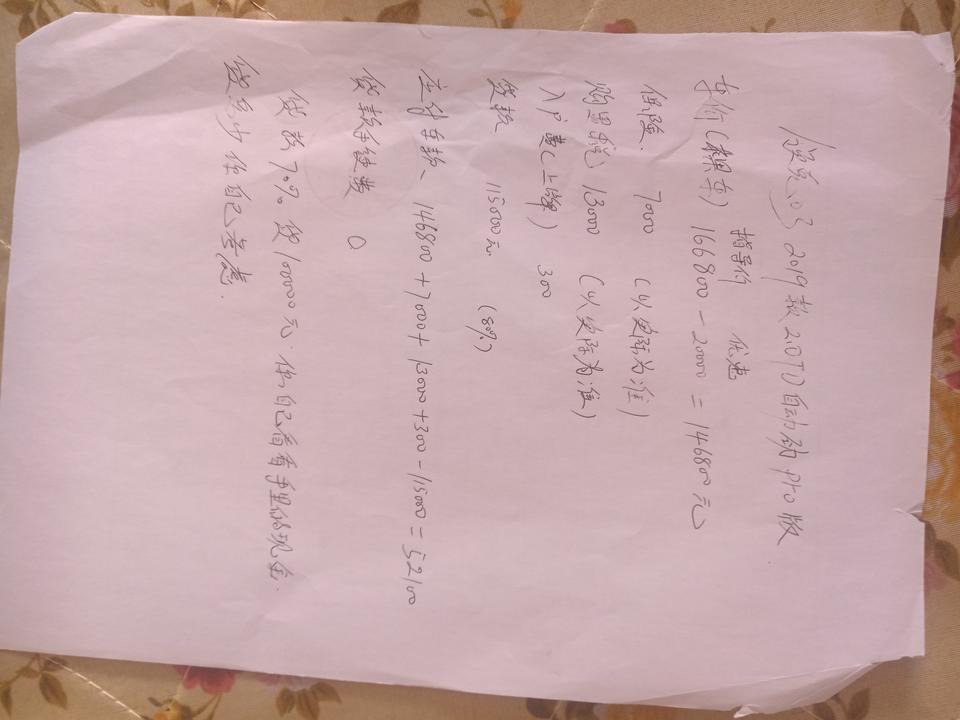 领克03 2019款 2.0TD自动劲Pro版
指导价 优惠
车价(裸车) 166800-20000=146800元
保险 7000 (以实际为准)
购置税 13000 (以实际为准)
入户费(上牌) 300
贷款 115000元 (80%)
应付车款、146800+7000+13000+300-115000=52100
贷款手续费 0
贷款70% 贷100000元.你自己看看手里的现金.
贷多少你自己考虑.